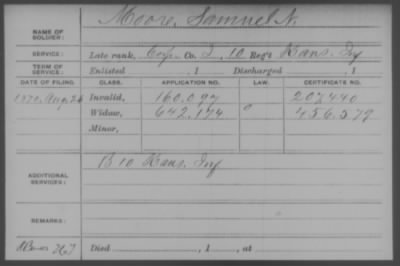 Moore, Samuel N.
NAME OF SOLDIER:
SERVICE: Late rank, Corp. Co. I, 10 Reg't Kans. Inf
TERM OF SERVICE: Enlisted , 1 Discharged , 1
DATE OF FILING. CLASS. APPLICATION NO. LAW. CERTIFICATE NO.
1870, Aug 26 Invalid, 160.097 207440
Widow, 642,174 456.579
Minor,
ADDITIONAL SERVICES: B 10 Kans. Inf
REMARKS:
Died , 1 , at